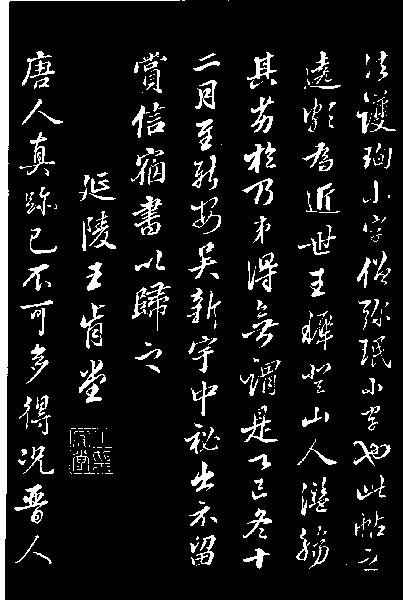 法護珣小字僧弥珉小字也此帖之
遠為近世王穉登山人濫觴
其劣於乃弟得無謂是乙巳冬十
二月至新安吳新宇中秘出示留
賞信宿書以歸之
延陵王肯堂
唐人真跡已不可多得況晉人